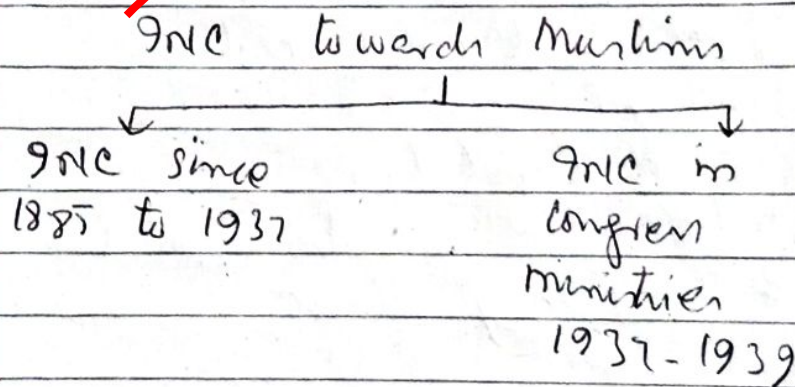 INC towards Muslims
INC since
1885 to 1937
INC in
congress
ministries
1937-1939